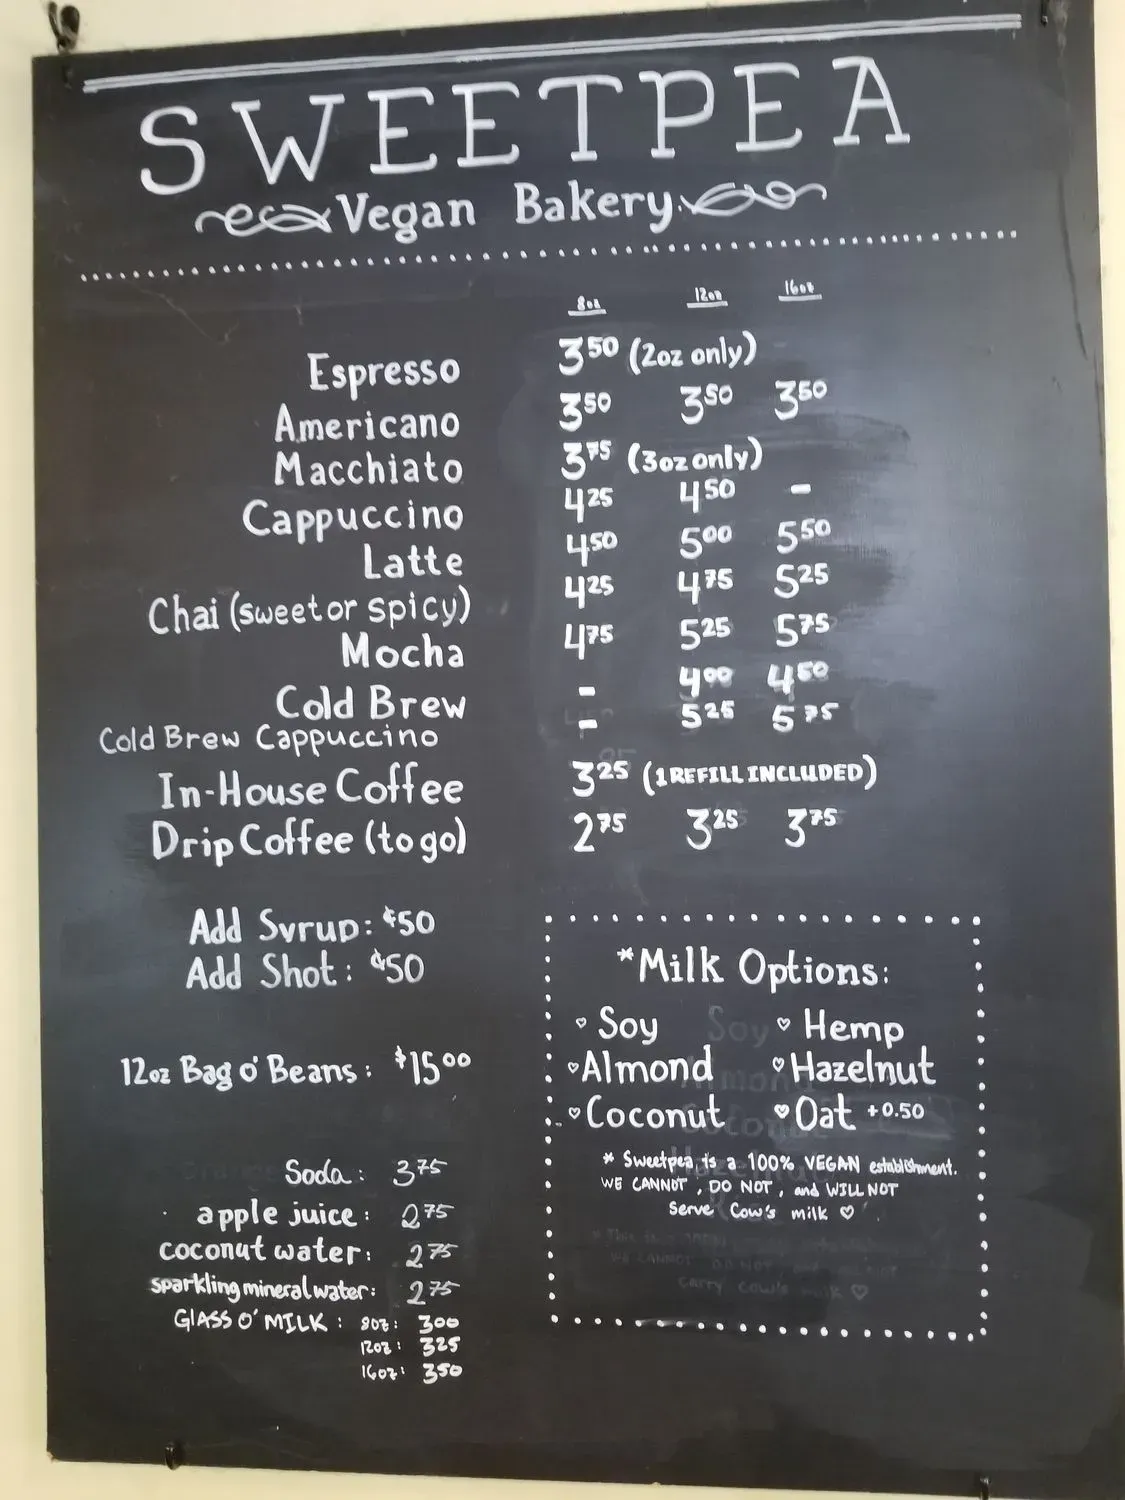 SWEETPEA
Vegan Bakery
8oz 12oz 16oz
Espresso 3.50 (2oz only)
Americano 3.50 3.50 3.50
Macchiato 3.75 (3oz only)
Cappuccino 4.25 4.50 -
Latte 4.50 5.00 5.50
Chai (sweet or spicy) 4.25 4.75 5.25
Mocha 4.75 5.25 5.75
Cold Brew - 4.00 4.50
Cold Brew Cappuccino - 5.25 5.75
In-House Coffee 3.25 (1 REFILL INCLUDED)
Drip Coffee (to go) 2.75 3.25 3.75
Add Syrup: ¢50
Add Shot: ¢50
12oz Bag o' Beans: $15.00
Soda: 3.75
apple juice: 2.75
coconut water: 2.75
sparkling mineral water: 2.75
GLASS O' MILK: 8oz: 300
12oz: 325
16oz: 350
*Milk Options:
♡ Soy ♡ Hemp
♡ Almond ♡ Hazelnut
♡ Coconut ♡ Oat +0.50
* Sweetpea is a 100% VEGAN establishment.
WE CANNOT, DO NOT, and WILL NOT
serve Cow's milk ♡